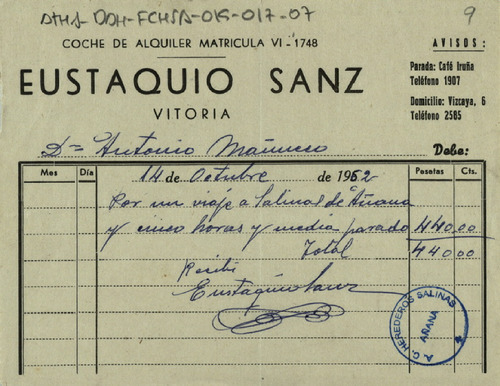 ATHA-DDH-FCHSA-019-017-07
9
COCHE DE ALQUILER MATRICULA VI - 1748
EUSTAQUIO SANZ
VITORIA
AVISOS:
Parada: Café Iruña
Teléfono 1907
Domicilio: Vizcaya, 6
Teléfono 2585
Dn Antonio Debe:
Mes Día 14 de Octubre de 1962 Pesetas Cts.
Por un viaje a Salinas de Añana
y cinco horas y media parado 440,00
Total 440 00
Recibi
Eustaquio Sanz
A. C. HEREDEROS SALINAS
AÑANA